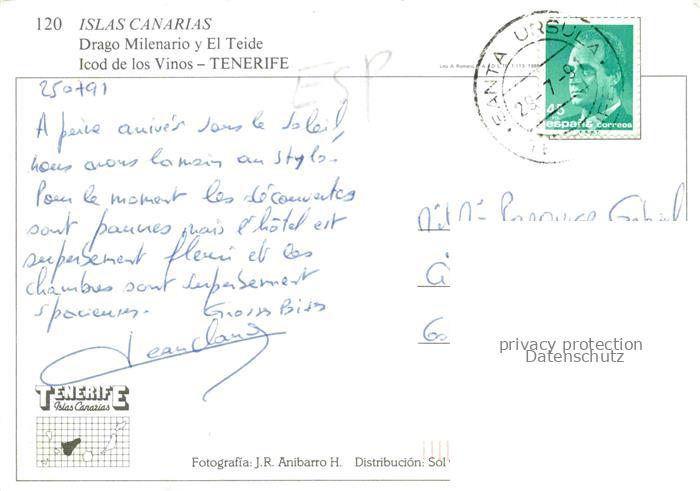 120 ISLAS CANARIAS
Drago Milenario y El Teide
Icod de los Vinos – TENERIFE
ESP
SANTA URSULA
45
españa correos
250791
A peine arrivés sous le soleil,
nous avons la main au stylo.
Pour le moment les découvertes
sont pauvres mais l'hôtel est
superbement fleuri et les
chambres sont superbement
spacieuses. Grosses Bises
Jean Claude
TENERIFE
Islas Canarias
Fotografía: J.R. Anibarro H. Distribución: Sol
privacy protection
Datenschutz